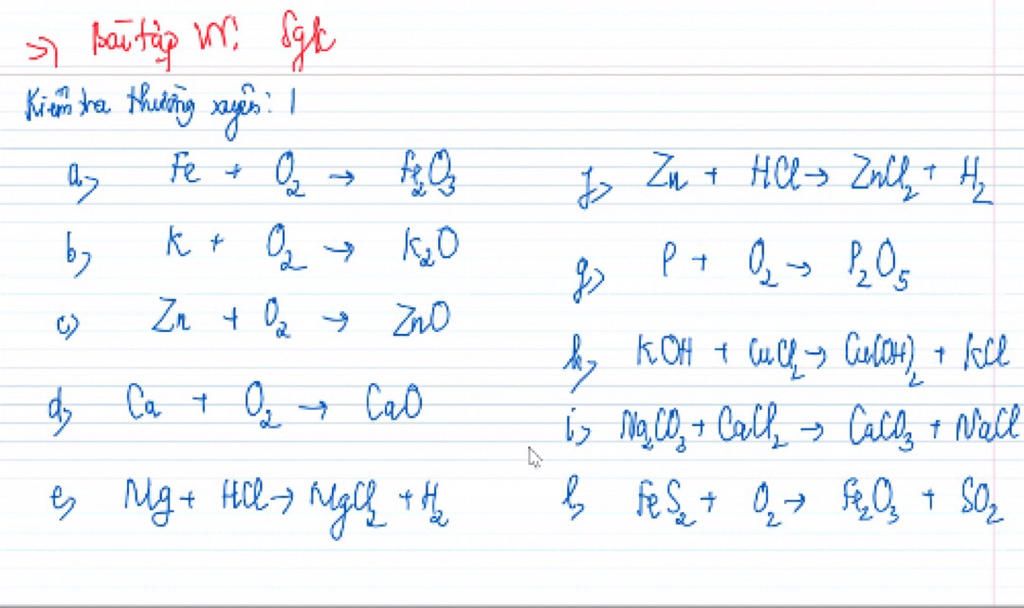 => Bài tập VN: Sgk
Kiểm tra thường xuyên: 1
a) Fe + O₂ → Fe₂O₃
b) K + O₂ → K₂O
c) Zn + O₂ → ZnO
d) Ca + O₂ → CaO
e) Mg + HCl → MgCl₂ + H₂
f) Zn + HCl → ZnCl₂ + H₂
g) P + O₂ → P₂O₅
h) KOH + CuCl₂ → Cu(OH)₂ + KCl
i) Na₂CO₃ + CaCl₂ → CaCO₃ + NaCl
l) FeS₂ + O₂ → Fe₂O₃ + SO₂